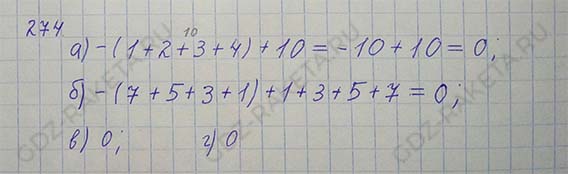 274
10
а) -(1+2+3+4)+10=-10+10=0;
б) -(7+5+3+1)+1+3+5+7=0;
в) 0; г) 0
GDZ-RAKETA.RU
GDZ-RAKETA.RU
GDZ-RAKETA.RU